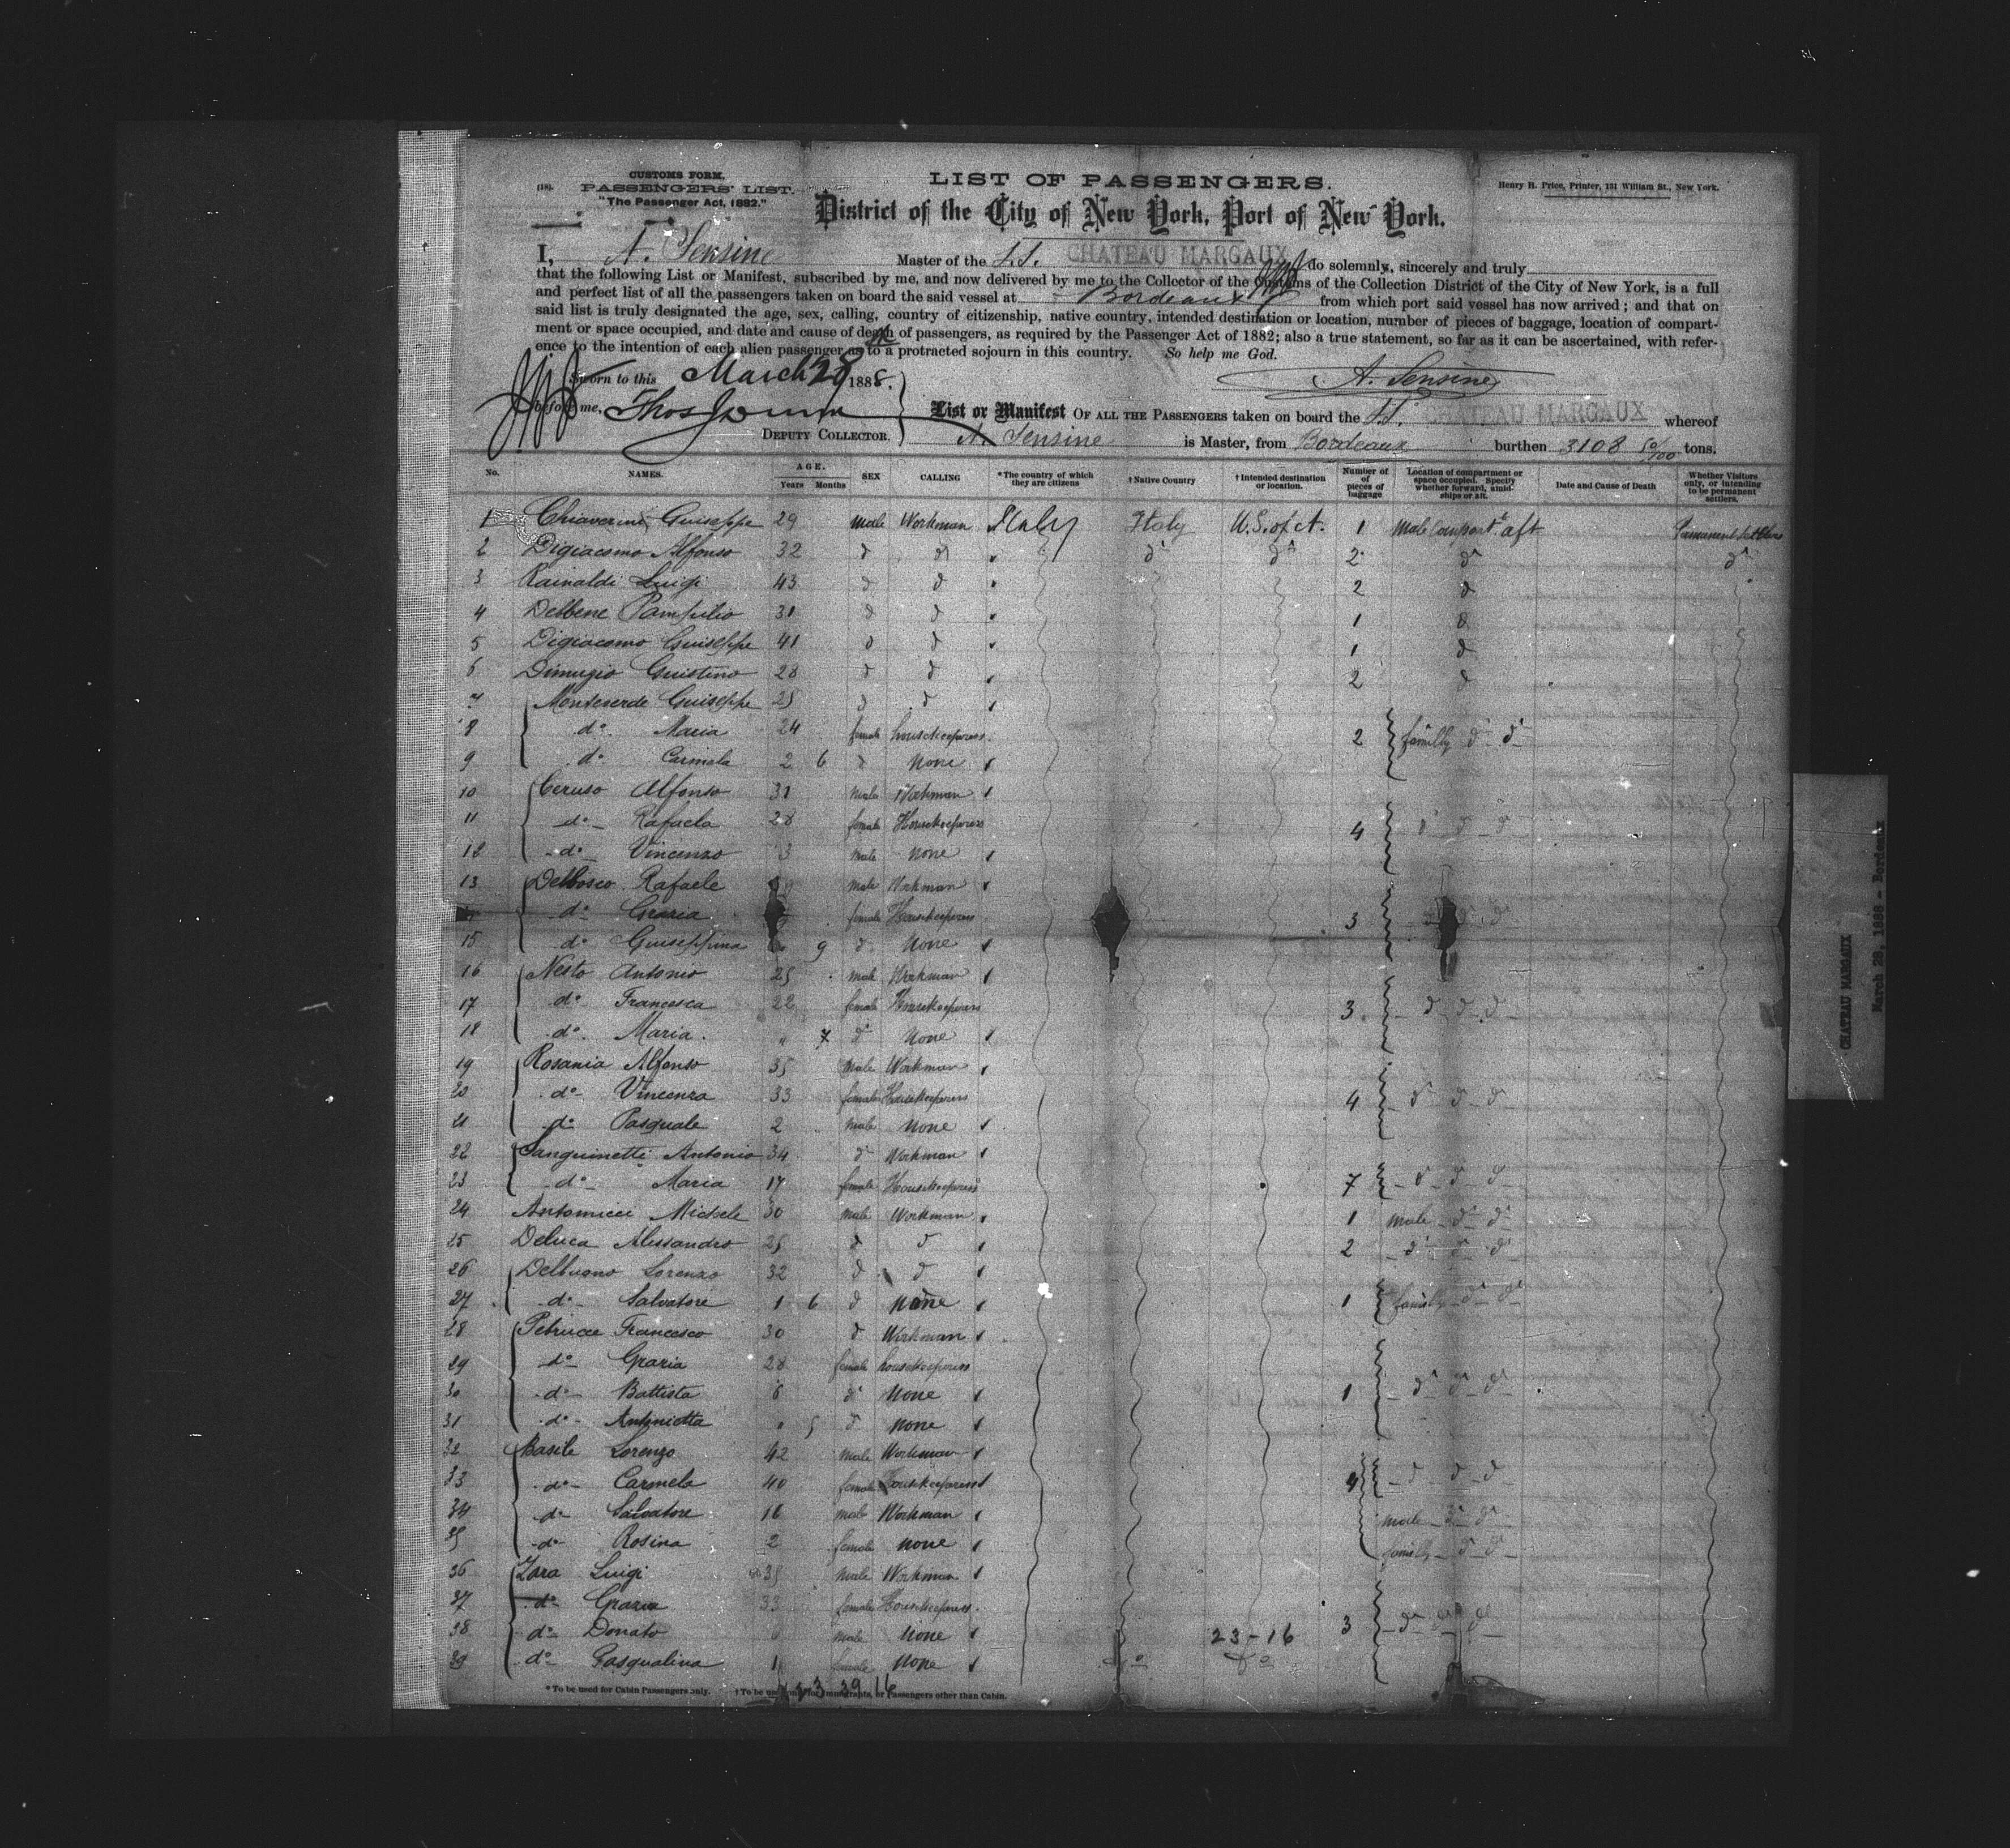 CUSTOMS FORM.
(18). PASSENGERS' LIST.
"The Passenger Act, 1882."
LIST OF PASSENGERS.
Henry H. Price, Printer, 131 William St., New York.
District of the City of New York, Port of New York.
I, A. Sensine Master of the S.S. CHATEAU MARGAUX do solemnly, sincerely and truly
that the following List or Manifest, subscribed by me, and now delivered by me to the Collector of the Customs of the Collection District of the City of New York, is a full
and perfect list of all the passengers taken on board the said vessel at Bordeaux from which port said vessel has now arrived; and that on
said list is truly designated the age, sex, calling, country of citizenship, native country, intended destination or location, number of pieces of baggage, location of compart-
ment or space occupied, and date and cause of death of passengers, as required by the Passenger Act of 1882; also a true statement, so far as it can be ascertained, with refer-
ence to the intention of each alien passenger as to a protracted sojourn in this country. So help me God.
Sworn to this March 28 1888. A. Sensine
before me, Thos
DEPUTY COLLECTOR.
List or Manifest OF ALL THE PASSENGERS taken on board the S.S. CHATEAU MARGAUX whereof
A. Sensine is Master, from Bordeaux burthen 3108 50/100 tons.
No. NAMES. AGE. Years Months SEX CALLING *The country of which they are citizens †Native Country †Intended destination or location. Number of pieces of baggage Location of compartment or space occupied. Specify whether forward, amidships or aft. Date and Cause of Death Whether Visitors only, or intending to be permanent settlers.
1 Chiaverini Guiseppe 29 male Workman Italy Italy U.S. of A. 1 Male Compart.t aft Permanent Settlers
2 Digiacomo Alfonso 32 d d d° d° 2 d° d°
3 Rainaldi Luigi 43 d d 2 d
4 Delbene Pampilio 31 d d 1 d
5 Digiacomo Guiseppe 41 d d 1 d
6 Dimugio Guistino 28 d d 2 d
7 Monteverde Guiseppe 25 d d
8 d° Maria 24 female housekeeperess 2 familly d° d°
9 d° Carmela 2 6 d none
10 Ceruso Alfonso 31 male Workman
11 d° Rafaela 28 female Housekeeperess 4 d d d
12 d° Vincenzo 3 male none
13 Delbosco Rafaele male Workman
d° Grazia female Housekeeperess 3 d d
15 d° Guiseppina 9 d none
16 Nesto Antonio 25 male Workman
17 d° Francesca 22 female Housekeeperess 3 d d d
18 d° Maria " 7 d° none
19 Rosania Alfonso 35 male Workman
20 d° Vincenza 33 female Housekeeperess 4 d d d
21 d° Pasquale 2 male none
22 Sanguinetti Antonio 34 d° Workman
23 d° Maria 17 female Housekeeperess 7 d d d
24 Antonucci Michele 30 male Workman 1 male d° d°
25 Deluca Alessandro 25 d d 2 d d d
26 Delbuono Lorenzo 32 d d
27 d° Salvatore 1 6 d none 1 familly d° d°
28 Petrucce Francesco 30 d Workman
29 d° Grazia 28 female housekeeperess
30 d° Battista 6 d° none 1 d° d° d°
31 d° Antonietta " 5 d none
32 Basile Lorenzo 42 male Workman
33 d° Carmela 40 female housekeeperess 4 d d d
34 d° Salvatore 16 male Workman male d° d°
35 d° Rosina 2 female none familly d d
36 Zara Luigi 35 male Workman
37 d° Grazia 33 female Housekeeperess
38 d° Donato male none 23-16 3 d° d° d°
39 d° Pasqualina 1 female none d° d°
*To be used for Cabin Passengers only. †To be used only for Immigrants, or Passengers other than Cabin.
39 16
CHATEAU MARGAUX
March 28, 1888 - Bordeaux